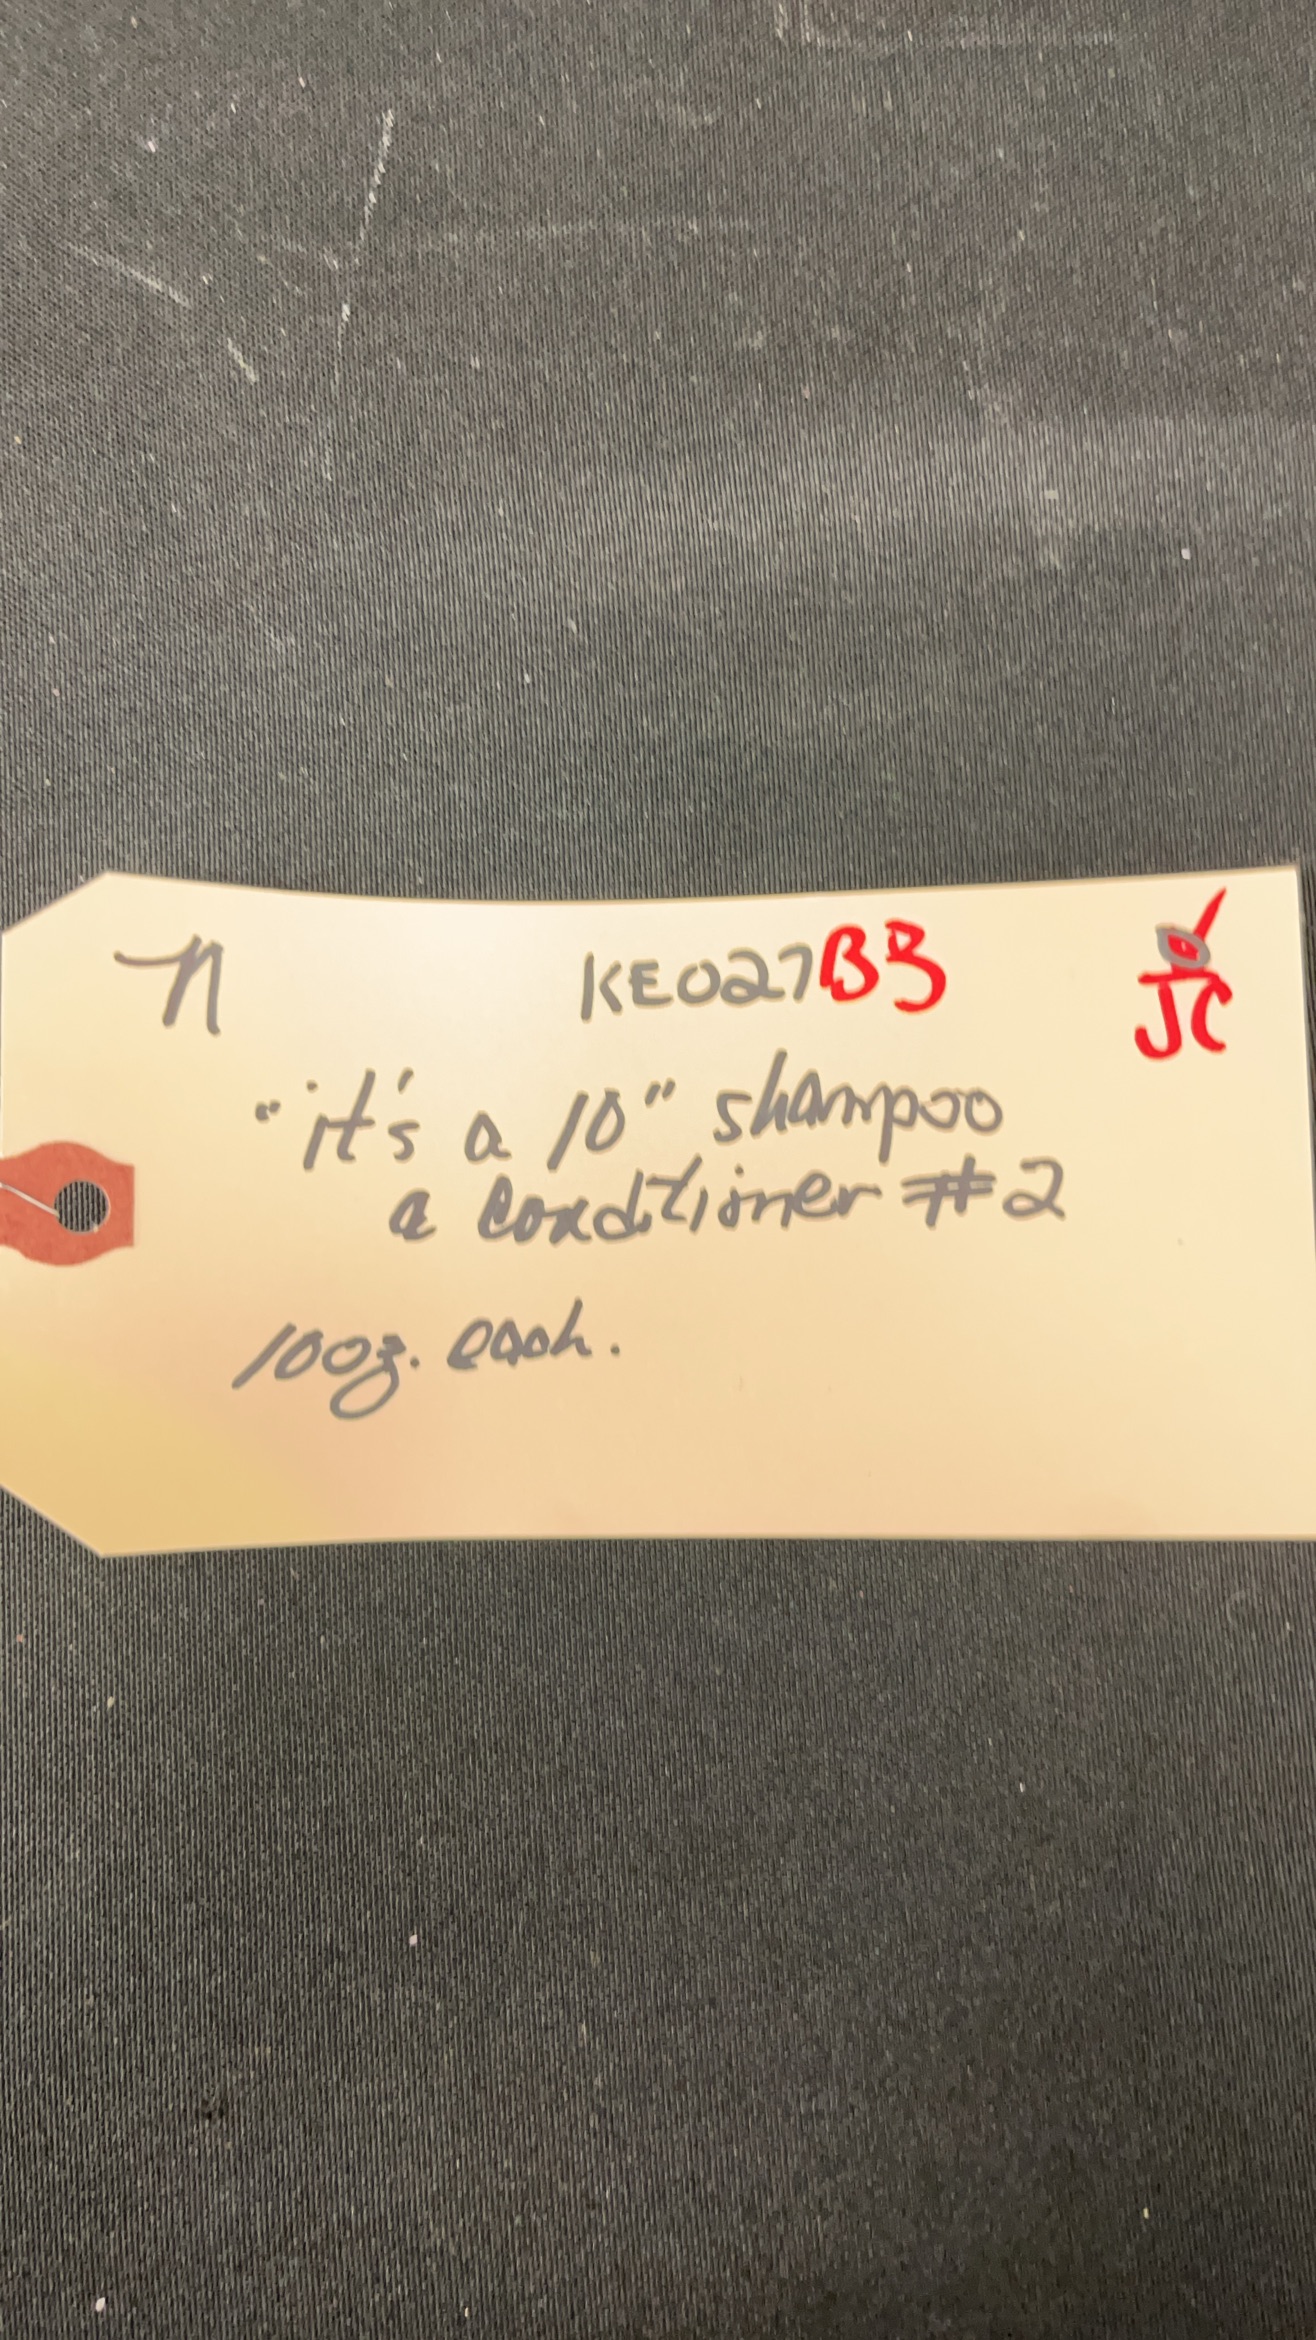 n KE027BB
"it's a 10" shampoo
a conditioner #2
10oz. each.
JC